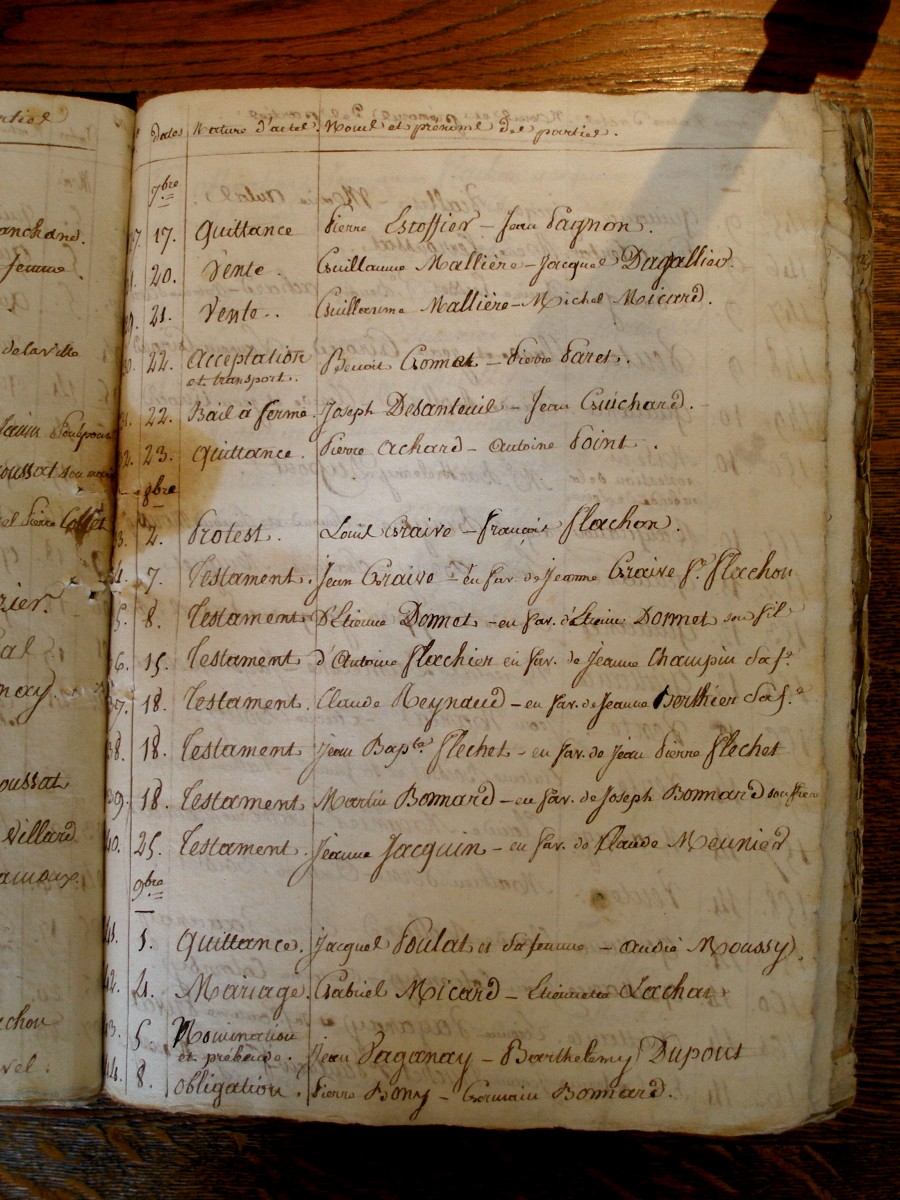 Dates Nature d'actes. Noms et prénoms des parties.
7bre
17. Quittance Pierre Escoffier – Jean Pagnon.
20. Vente. Guillaume Mallière – Jacques Dagallier.
21. Vente. Guillaume Mallière – Michel Micard.
22. Acceptation Benoit Gonnet – Pierre Paret.
et transport.
22. Bail à ferme. Joseph Desanteuil – Jean Guichard.
23. Quittance. Pierre Achard – Antoine Point.
8bre
2. Protest. Louis Graive – François Flachon.
7. Testament. Jean Graive – en fav. de Jeanne Graive fe. Flachon
8. Testament d'Etienne Donnet – en fav. d'Etienne Donnet son fils
15. Testament d'Antoine Flachier en fav. de Jeanne Champin sa fe.
18. Testament. Claude Reynaud – en fav. de Jeanne Berthier sa fe.
18. Testament. Jean Bapte. Flechet – en fav. de Jean Pierre Flechet
18. Testament. Martin Bonnard – en fav. de Joseph Bonnard son frere
25. Testament. Jeanne Jacquin – en fav. de Claude Meunier
9bre
1. Quittance. Jacques Poulat et sa femme – André Moussy.
4. Mariage. Gabriel Micard – Etiennette Lachat
5. Nomination
et prébende. Jean Paganay – Barthelemy Dupont
8. Obligation. Pierre Bony – Germain Bonnard.